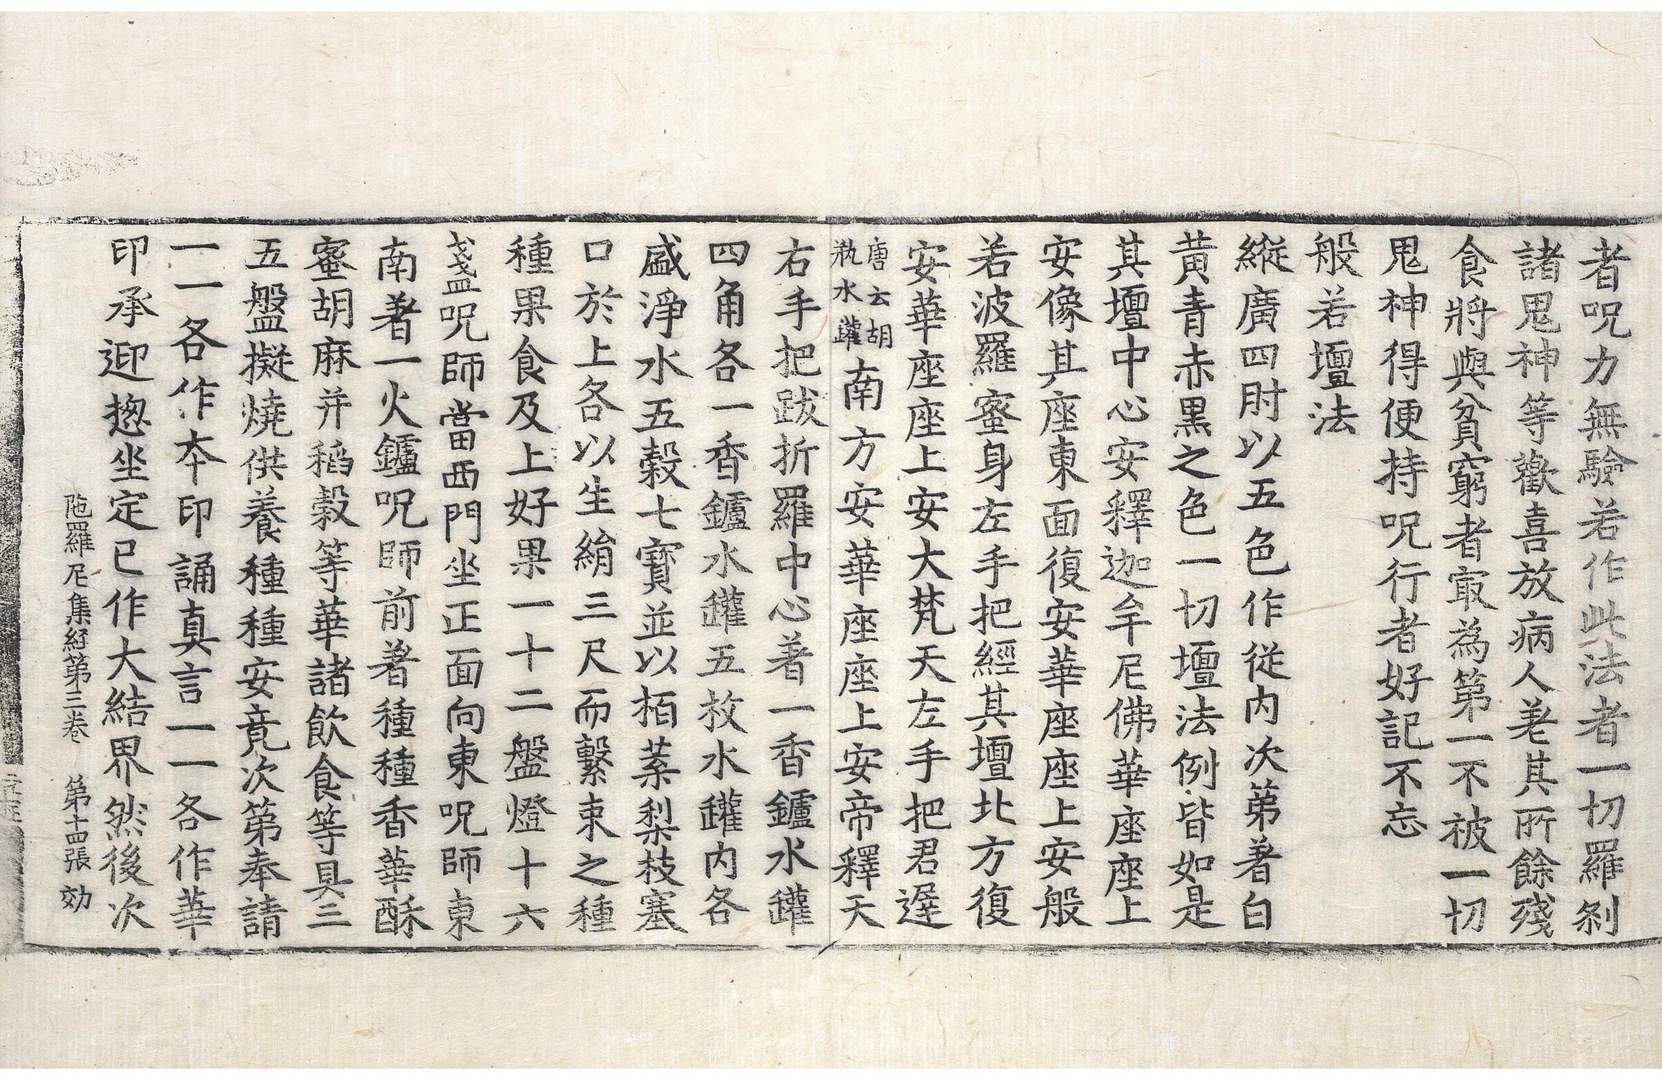 者呪力無驗若作此法者一切羅剎
諸鬼神等歡喜放病人差其所餘殘
食將與貧窮者㝡為第一不被一切
鬼神得便持呪行者好記不忘
般若壇法
縱廣四肘以五色作從内次第著白
黃青赤黑之色一切壇法例皆如是
其壇中心安釋迦牟尼佛華座座上
安像其座東面復安華座座上安般
若波羅蜜身左手把經其壇北方復
安華座座上安大梵天左手把君遲
唐云胡
瓶水罐南方安華座座上安帝釋天
右手把跋折羅中心著一香鑪水罐
四角各一香鑪水罐五枚水罐内各
盛淨水五穀七寶並以栢㮈梨枝塞
口於上各以生絹三尺而繫束之種
種果食及上好果一十二盤燈十六
盞呪師當西門坐正面向東呪師東
南著一火鑪呪師前著種種香華酥
蜜胡麻并稻穀等華諸飲食等具三
五盤擬燒供養種種安竟次第奉請
一一各作夲印誦真言一一各作華
印承迎摠坐定已作大結界然後次
陁羅尼集經第三卷　第十四張　効